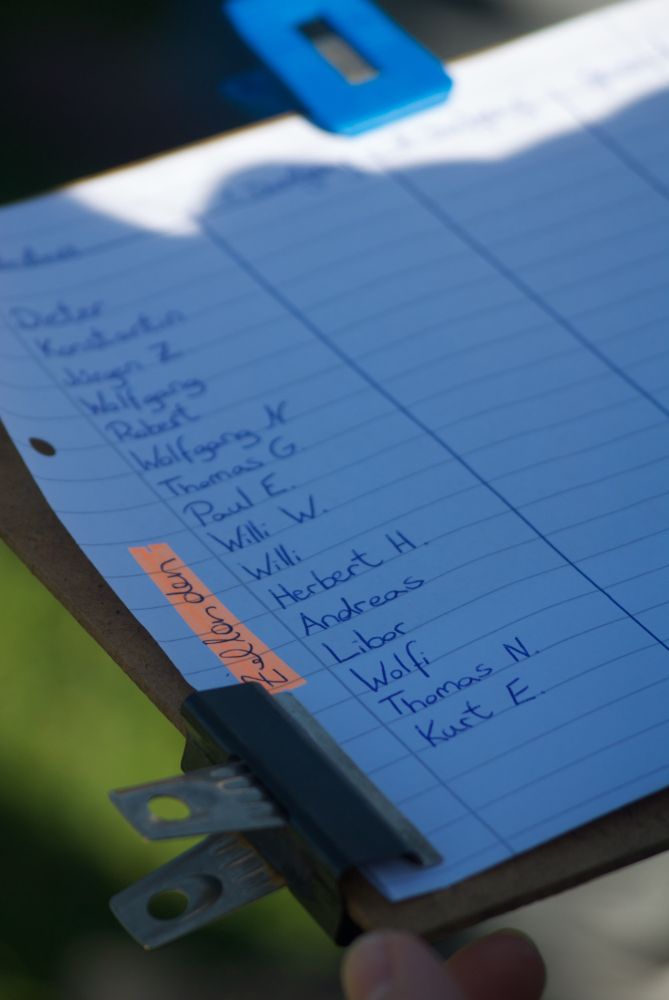 Dieter
Konstantin
Jürgen Z
Wolfgang
Robert
Wolfgang N
Thomas G.
Paul E.
Willi W.
Willi
Herbert H.
Andreas
Libor
Wolfi
Thomas N.
Kurt E.